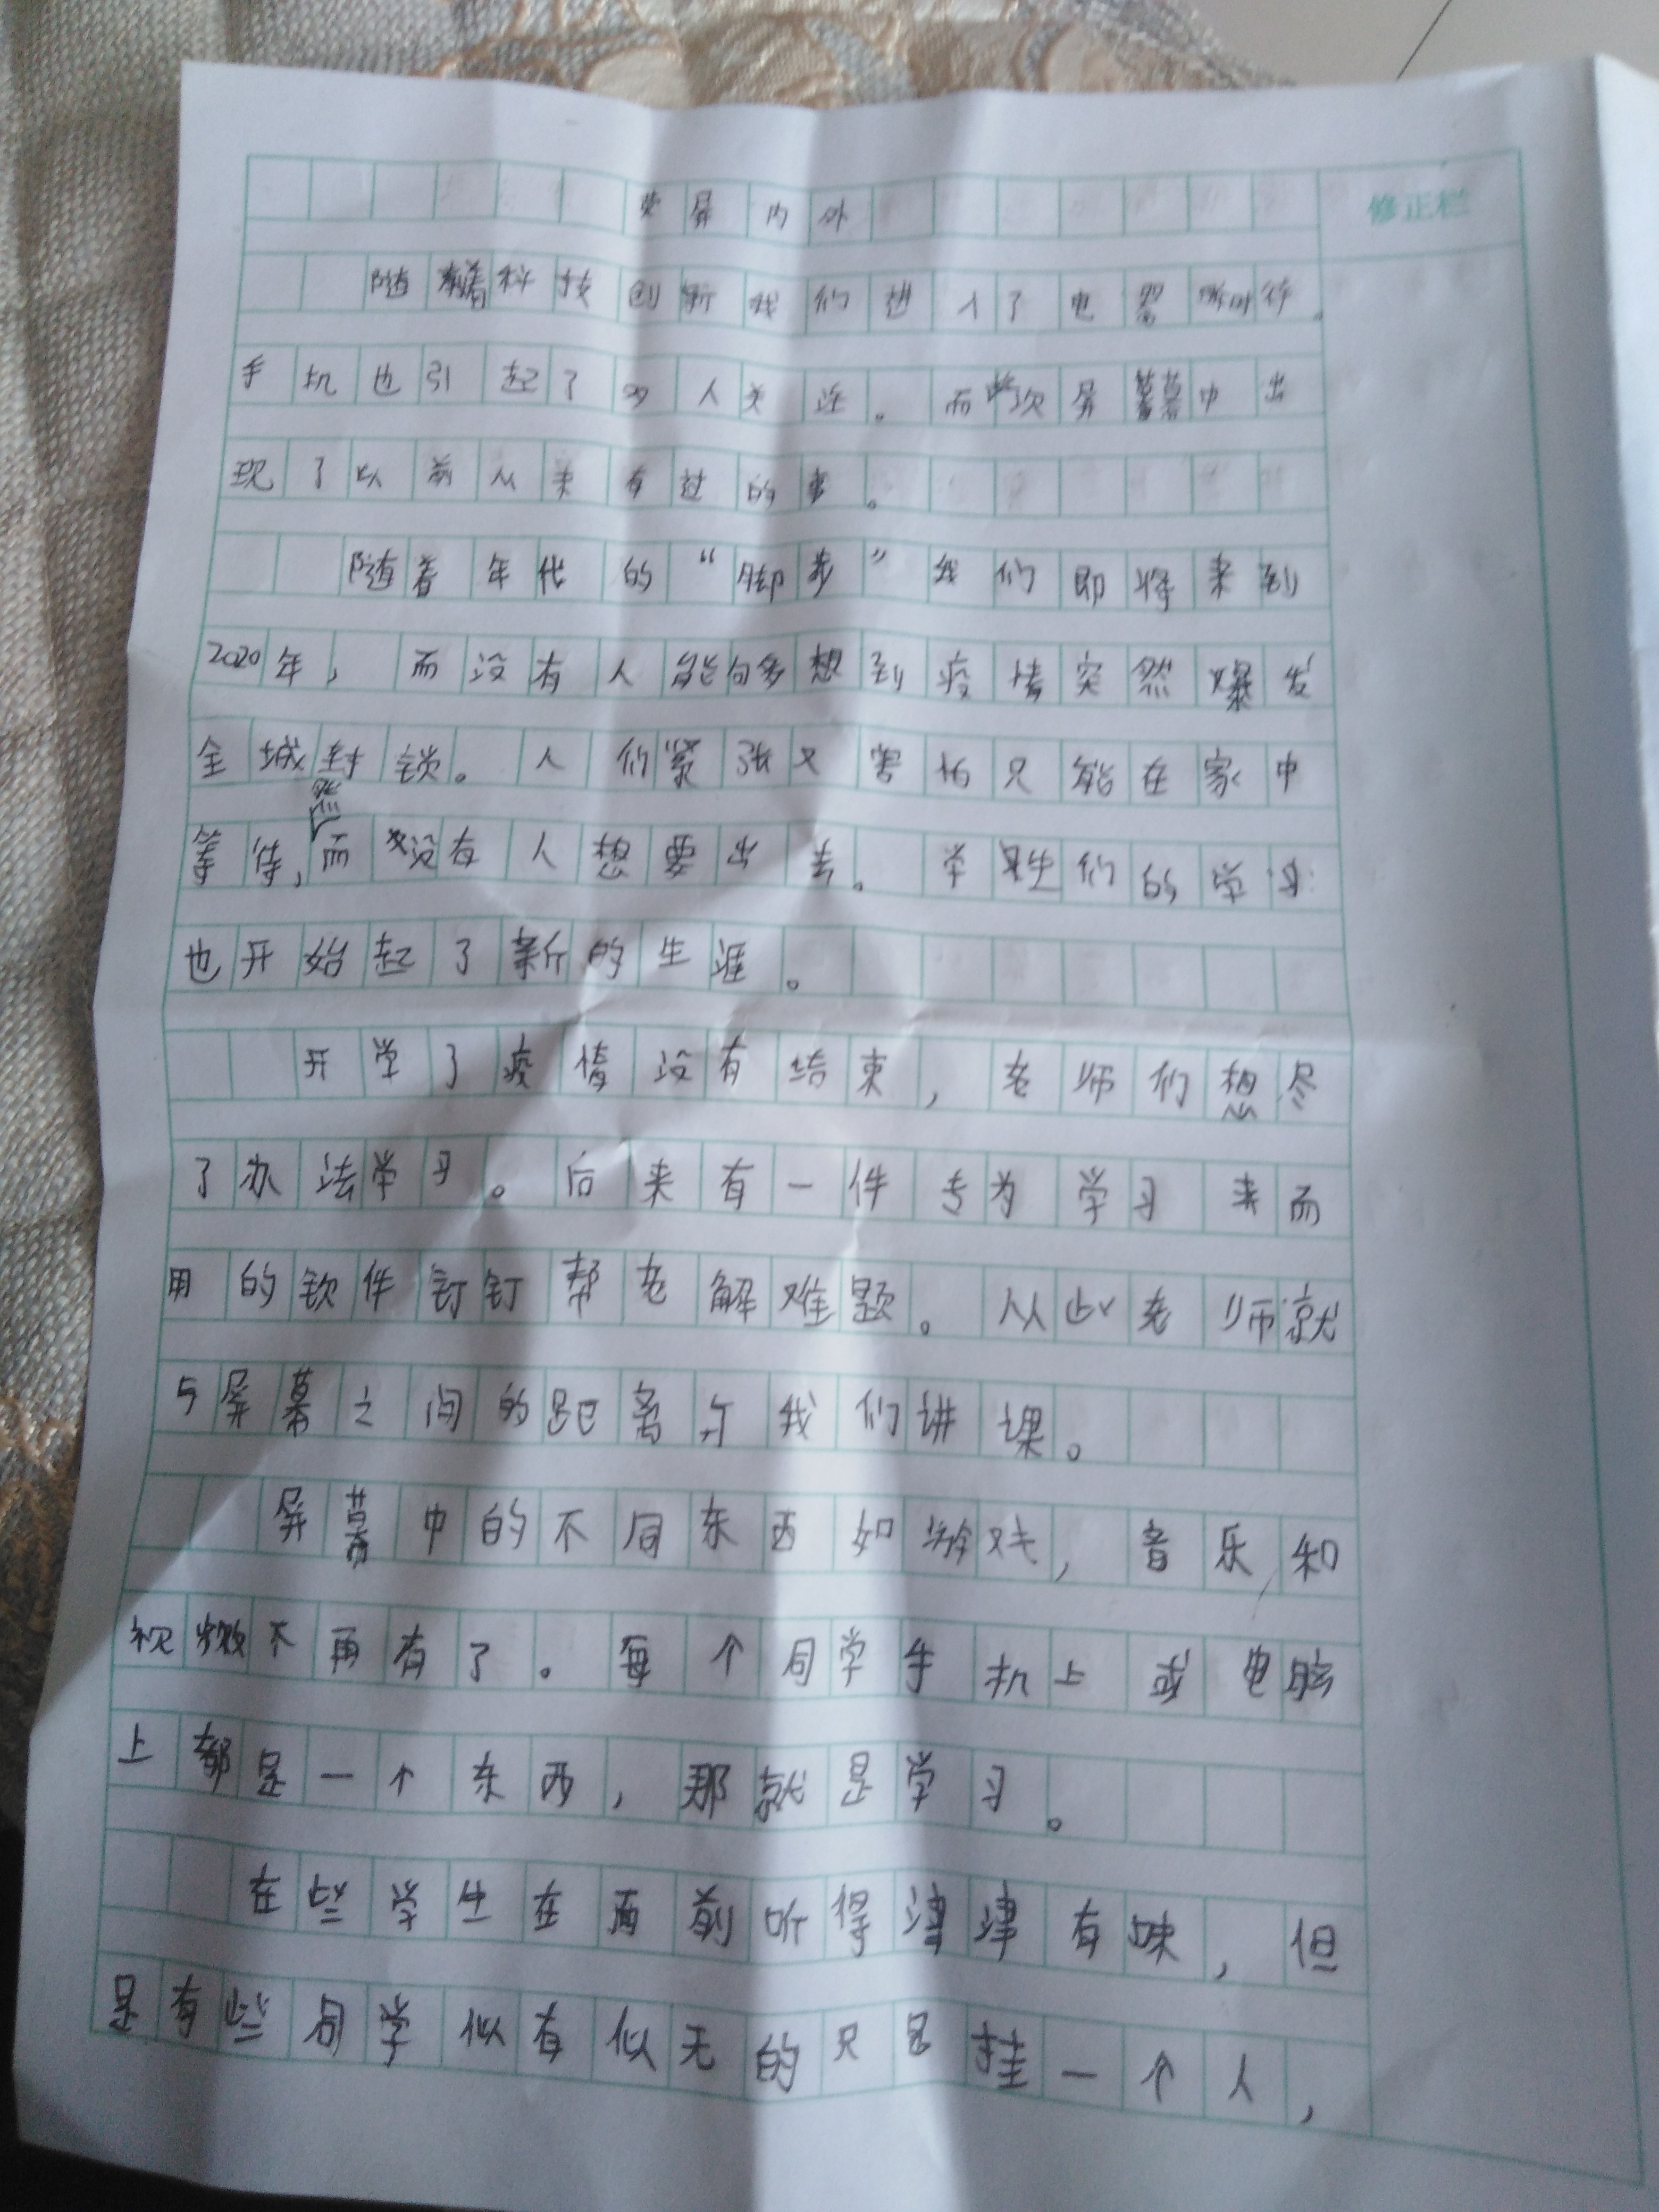 荧屏内外
修正栏
随着科技创新我们进入了电器时代。
手机也引起了多人关注。而此次屏幕中出
现了以前从未有过的事。
随着年代的“脚步”我们即将来到
2020年，而没有人能够想到疫情突然爆发
全城封锁。人们紧张又害怕只能在家中
等待，然而没有人想要出去。学生们的学习
也开始起了新的生涯。
开学了疫情没有结束，老师们想尽
了办法学习。后来有一件专为学习来而
用的软件钉钉帮老解难题。从此老师就
与屏幕之间的距离于我们讲课。
屏幕中的不同东西如游戏，音乐和
视频不再有了。每个同学手机上或电脑
上都是一个东西，那就是学习。
在些学生在面前听得津津有味，但
是有些同学似有似无的只是挂一个人，